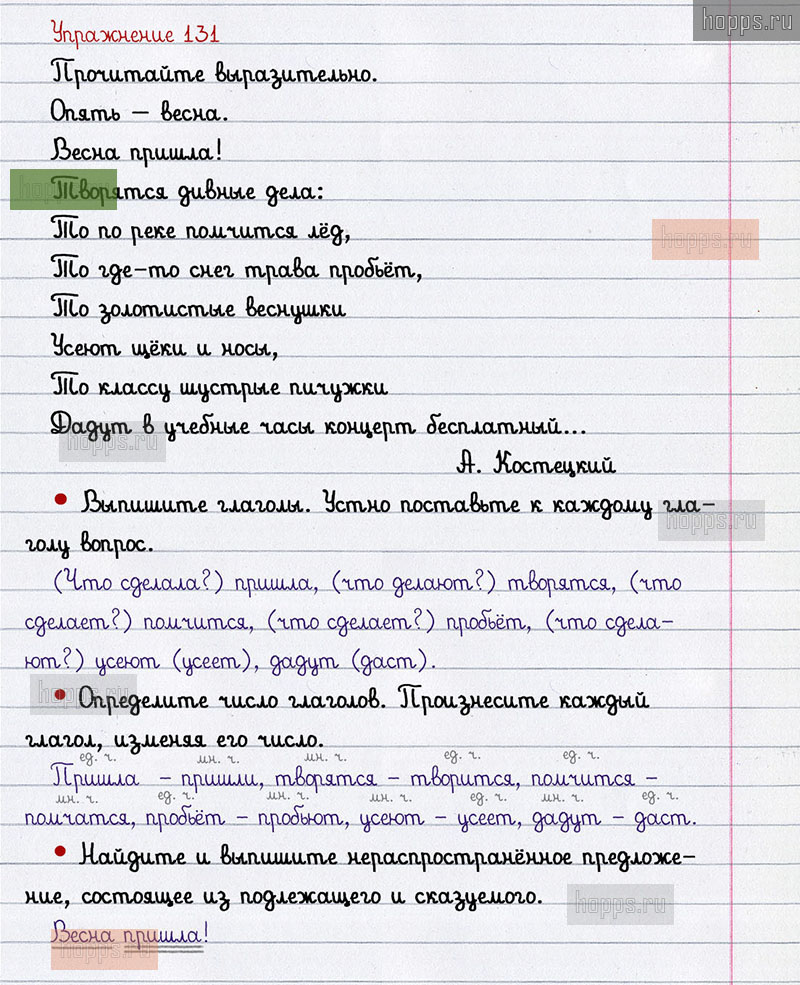 hopps.ru
Упражнение 131
Прочитайте выразительно.
Опять – весна.
Весна пришла!
Творятся дивные дела:
То по реке помчится лёд,
hopps.ru
То где-то снег трава пробьёт,
То золотистые веснушки
Усеют щёки и носы,
То классу шустрые пичужки
Дадут в учебные часы концерт бесплатный...
hopps.ru
А. Костецкий
• Выпишите глаголы. Устно поставьте к каждому гла-
hopps.ru
голу вопрос.
(Что сделала?) пришла, (что делают?) творятся, (что
сделает?) помчится, (что сделает?) пробьёт, (что сдела-
ют?) усеют (усеет), дадут (даст).
hopps.ru
• Определите число глаголов. Произнесите каждый
глагол, изменяя его число.
ед. ч. мн. ч. мн. ч. ед. ч. ед. ч.
Пришла – пришли, творятся – творится, помчится –
мн. ч. ед. ч. мн. ч. мн. ч. ед. ч. мн. ч. ед. ч.
помчатся, пробьёт – пробьют, усеют – усеет, дадут – даст.
• Найдите и выпишите нераспространённое предложе-
ние, состоящее из подлежащего и сказуемого.
hopps.ru
Весна пришла!